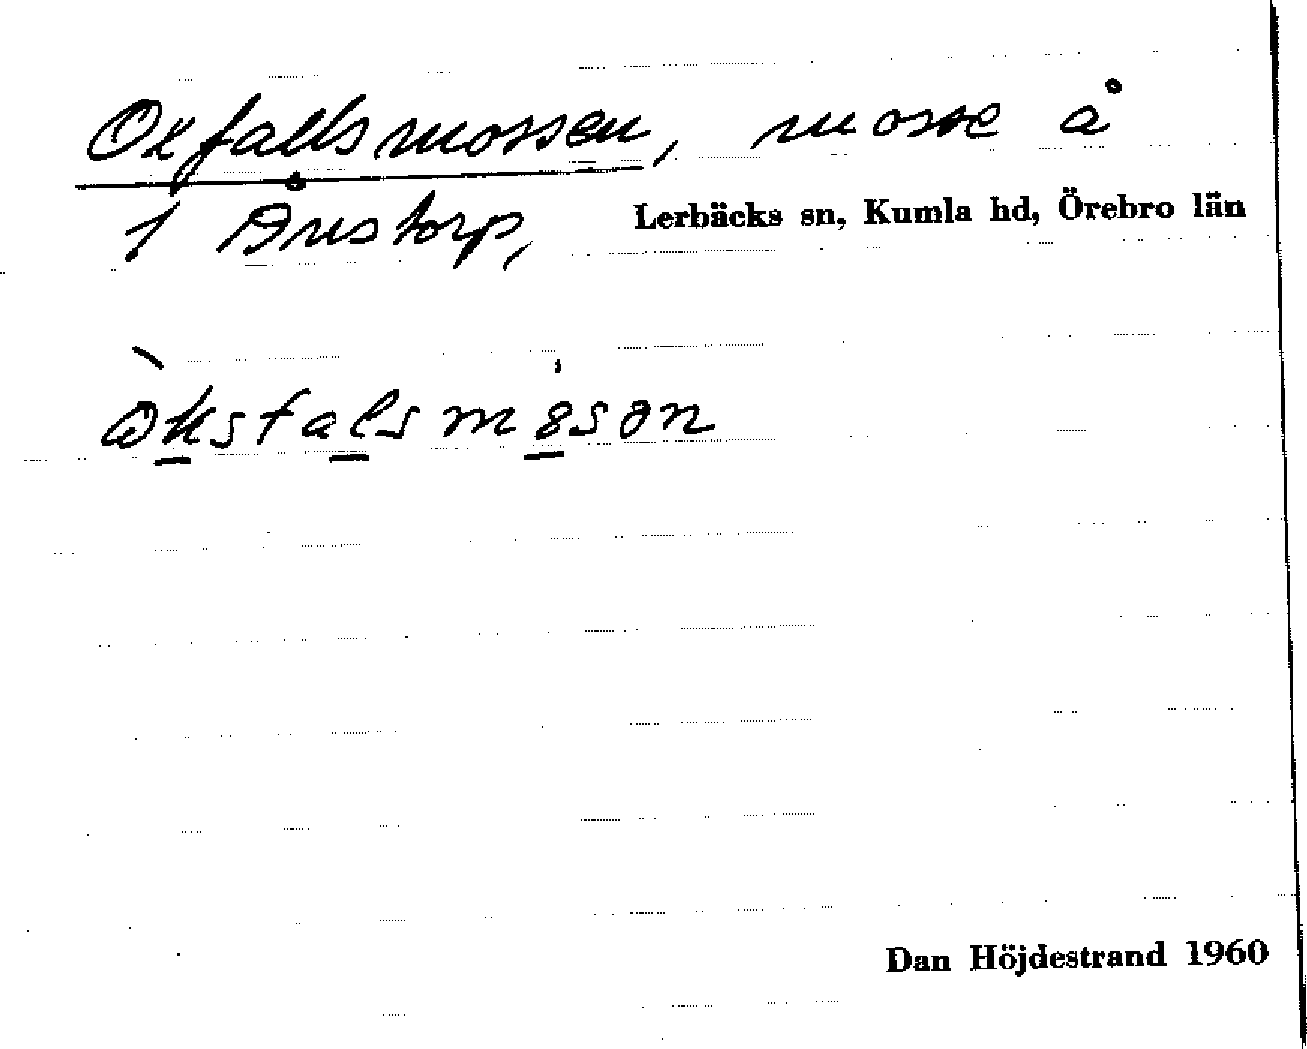 Oxfallsmossen, mosse å
1 Åvistorp, Lerbäcks sn, Kumla hd, Örebro län
Dan Höjdestrand 1960